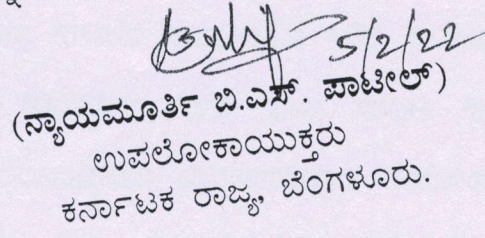 5/2/22
(ನ್ಯಾಯಮೂರ್ತಿ ಬಿ.ಎಸ್. ಪಾಟೀಲ್)
ಉಪಲೋಕಾಯುಕ್ತರು
ಕರ್ನಾಟಕ ರಾಜ್ಯ, ಬೆಂಗಳೂರು.